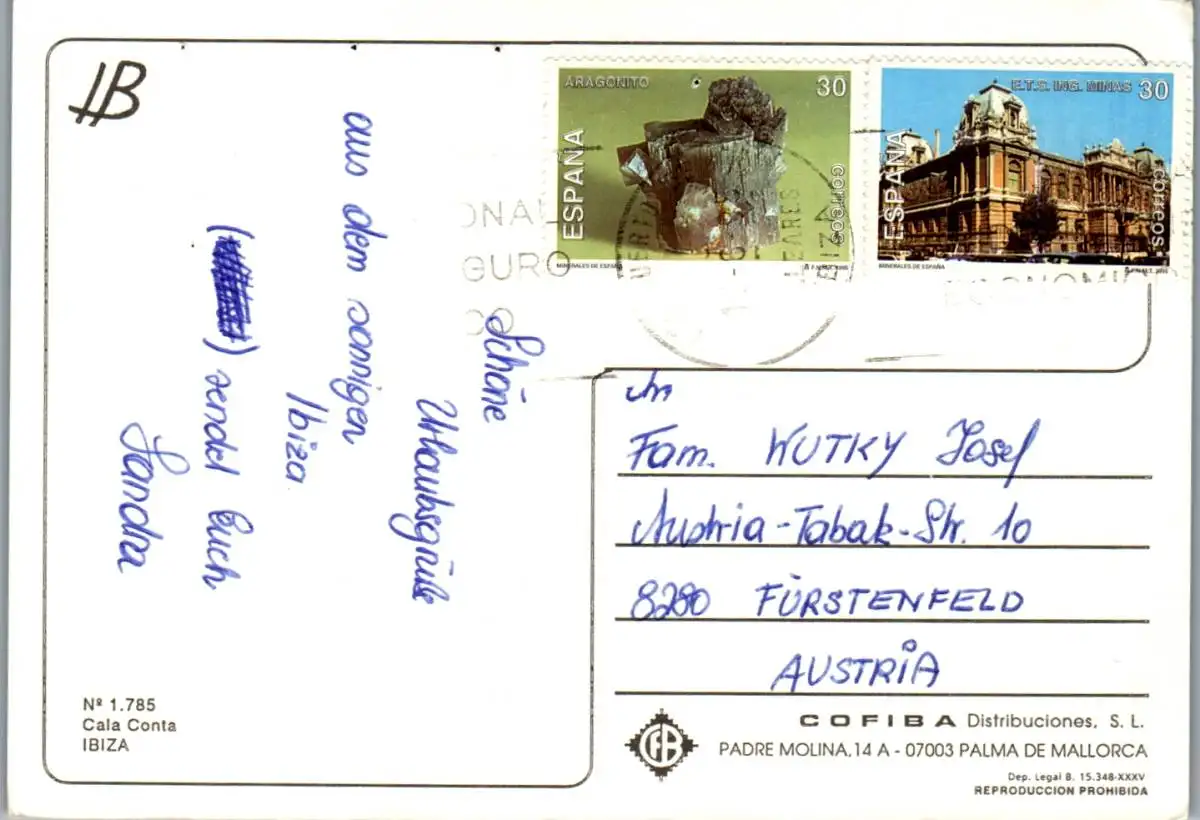 IB
Schöne
Urlaubsgrüße
aus dem sonnigen
Ibiza
( ) sendet Euch
Sandra
Nº 1.785
Cala Conta
IBIZA
ARAGONITO 30
ESPAÑA
CORREOS
MINERALES DE ESPAÑA
E.T.S. ING. MINAS 30
ESPAÑA
CORREOS
MINERALES DE ESPAÑA
ONAL
GURO
CO
ECONOMIC
An
Fam. WUTKY Josef
Austria-Tabak-Str. 10
8280 FÜRSTENFELD
AUSTRIA
CFB
COFIBA Distribuciones, S. L.
PADRE MOLINA, 14 A - 07003 PALMA DE MALLORCA
Dep. Legal B. 15.348-XXXV
REPRODUCCION PROHIBIDA